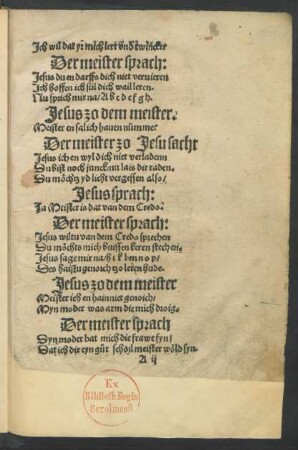 Ich wil dat yr mich lert vnd
Der meister sprach:
Jesus du en darffs dich niet veruieren
Ich hoffen ich sül dich wail leren.
Nu sprich mir na/ A b c d e f g h.
Jesus zo dem meister.
Meister en salich hauen nümme
Der meister zo Jesu sacht
Jesus ich en wyl dich niet verladenn
Du bist noch junck nu lais dir raden.
Du möchtz yd licht vergessen also/
Jesus sprach:
Ja Meister is dat van dem Credo?
Der meister sprach:
Jesus wiltu van dem Credo sprechen
Du möchts mich buissen keren stechen
Jesus sage mir na/ h i k l m n o p/
Des haistu genoich zo leren hude.
Jesus zo dem meister
Meister ich en hain niet genoich/
Myn moder was arm die mich droig.
Der meister sprach
Dyn moder hat mich die frawe fyn/
Dat ich dir eyn güt scholmeister wöld syn.
A ij
Ex
Biblioth. Regia
Berolinensi